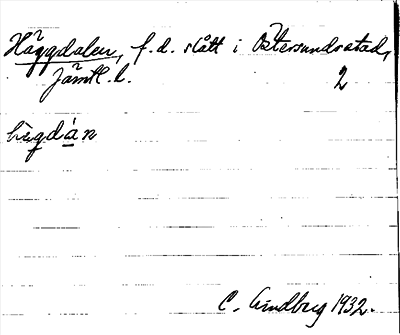 Häggdalen, f.d. slått i Östersundsstad,
Jämtl. l. 2
hὲgdàn
C. Lindberg 1932.